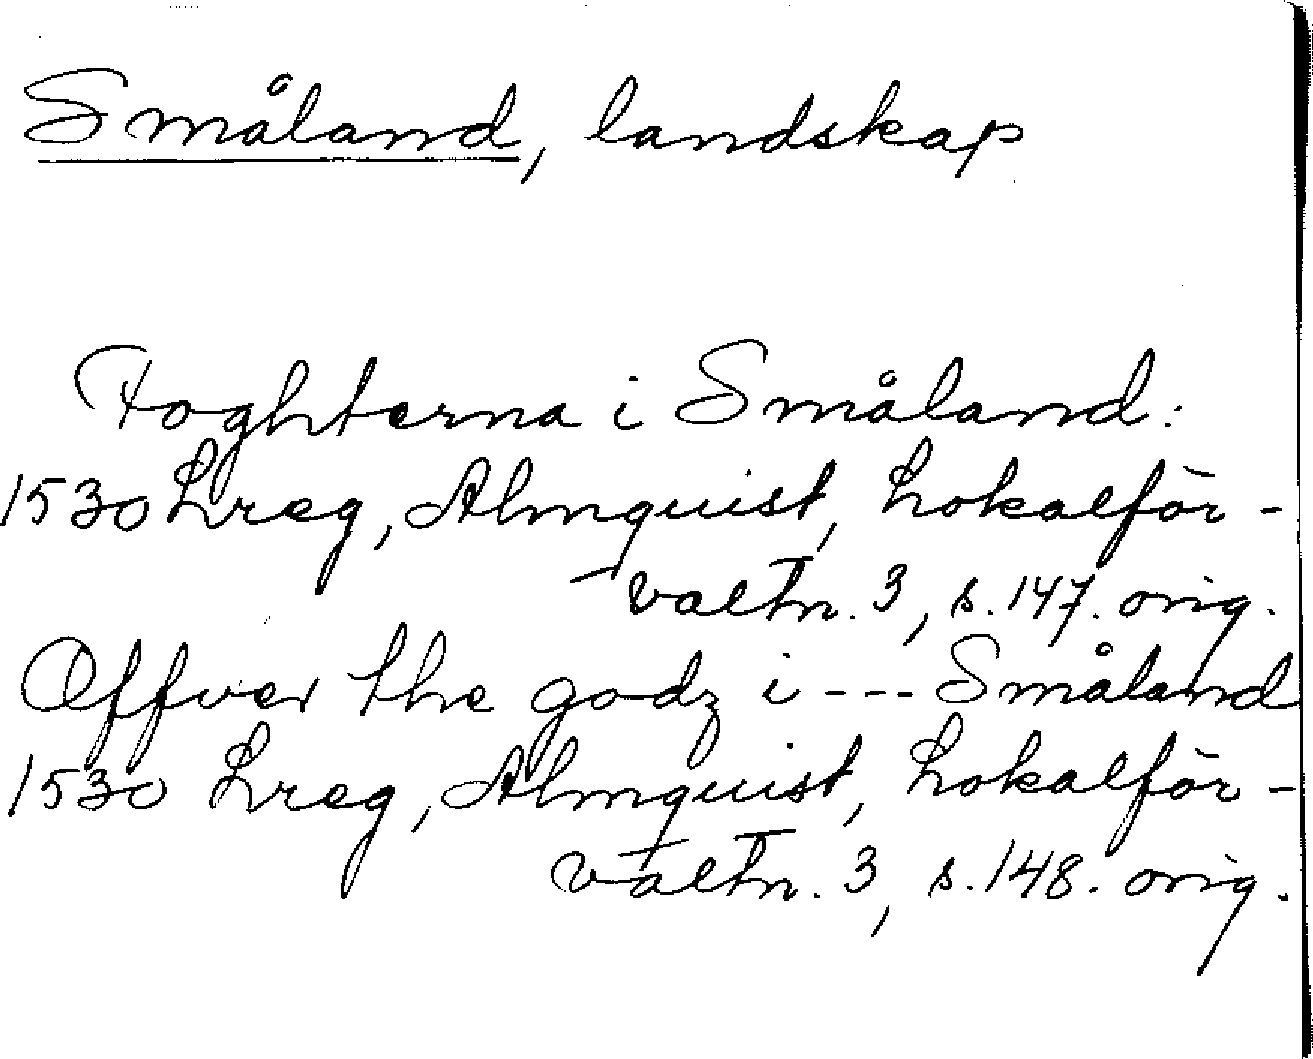 Småland, landskap
Foghterna i Småland:
1530 Lreg, Almquist, Lokalför-
valtn. 3, s. 147. orig.
Offver the godz i --- Småland
1530 Lreg, Almquist, Lokalför-
valtn. 3, s. 148. orig.